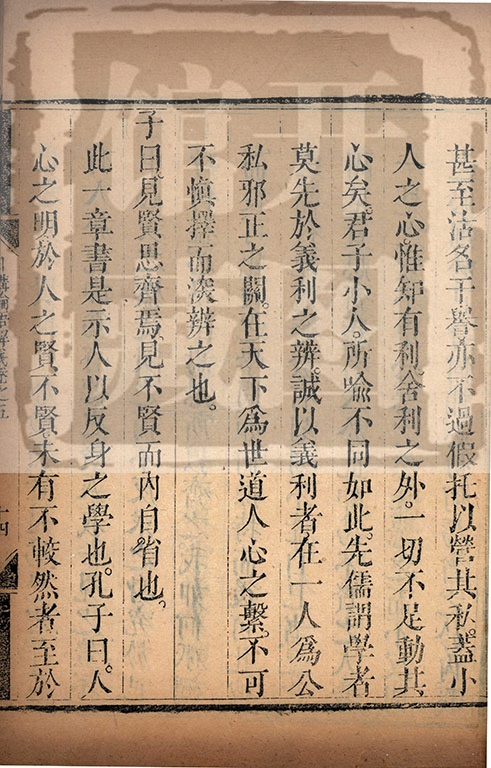 甚至沽名干譽亦不過假托以營其私蓋小
人之心惟知有利舍利之外一切不足動其
心矣君子小人所喩不同如此先儒謂學者
莫先於義利之辨誠以義利者在一人爲公
私邪正之關在天下爲世道人心之繫不可
不愼擇而深辨之也
子曰見賢思齊焉見不賢而內自省也
此一章書是示人以反身之學也孔子曰人
心之明於人之賢不賢未有不較然者至於